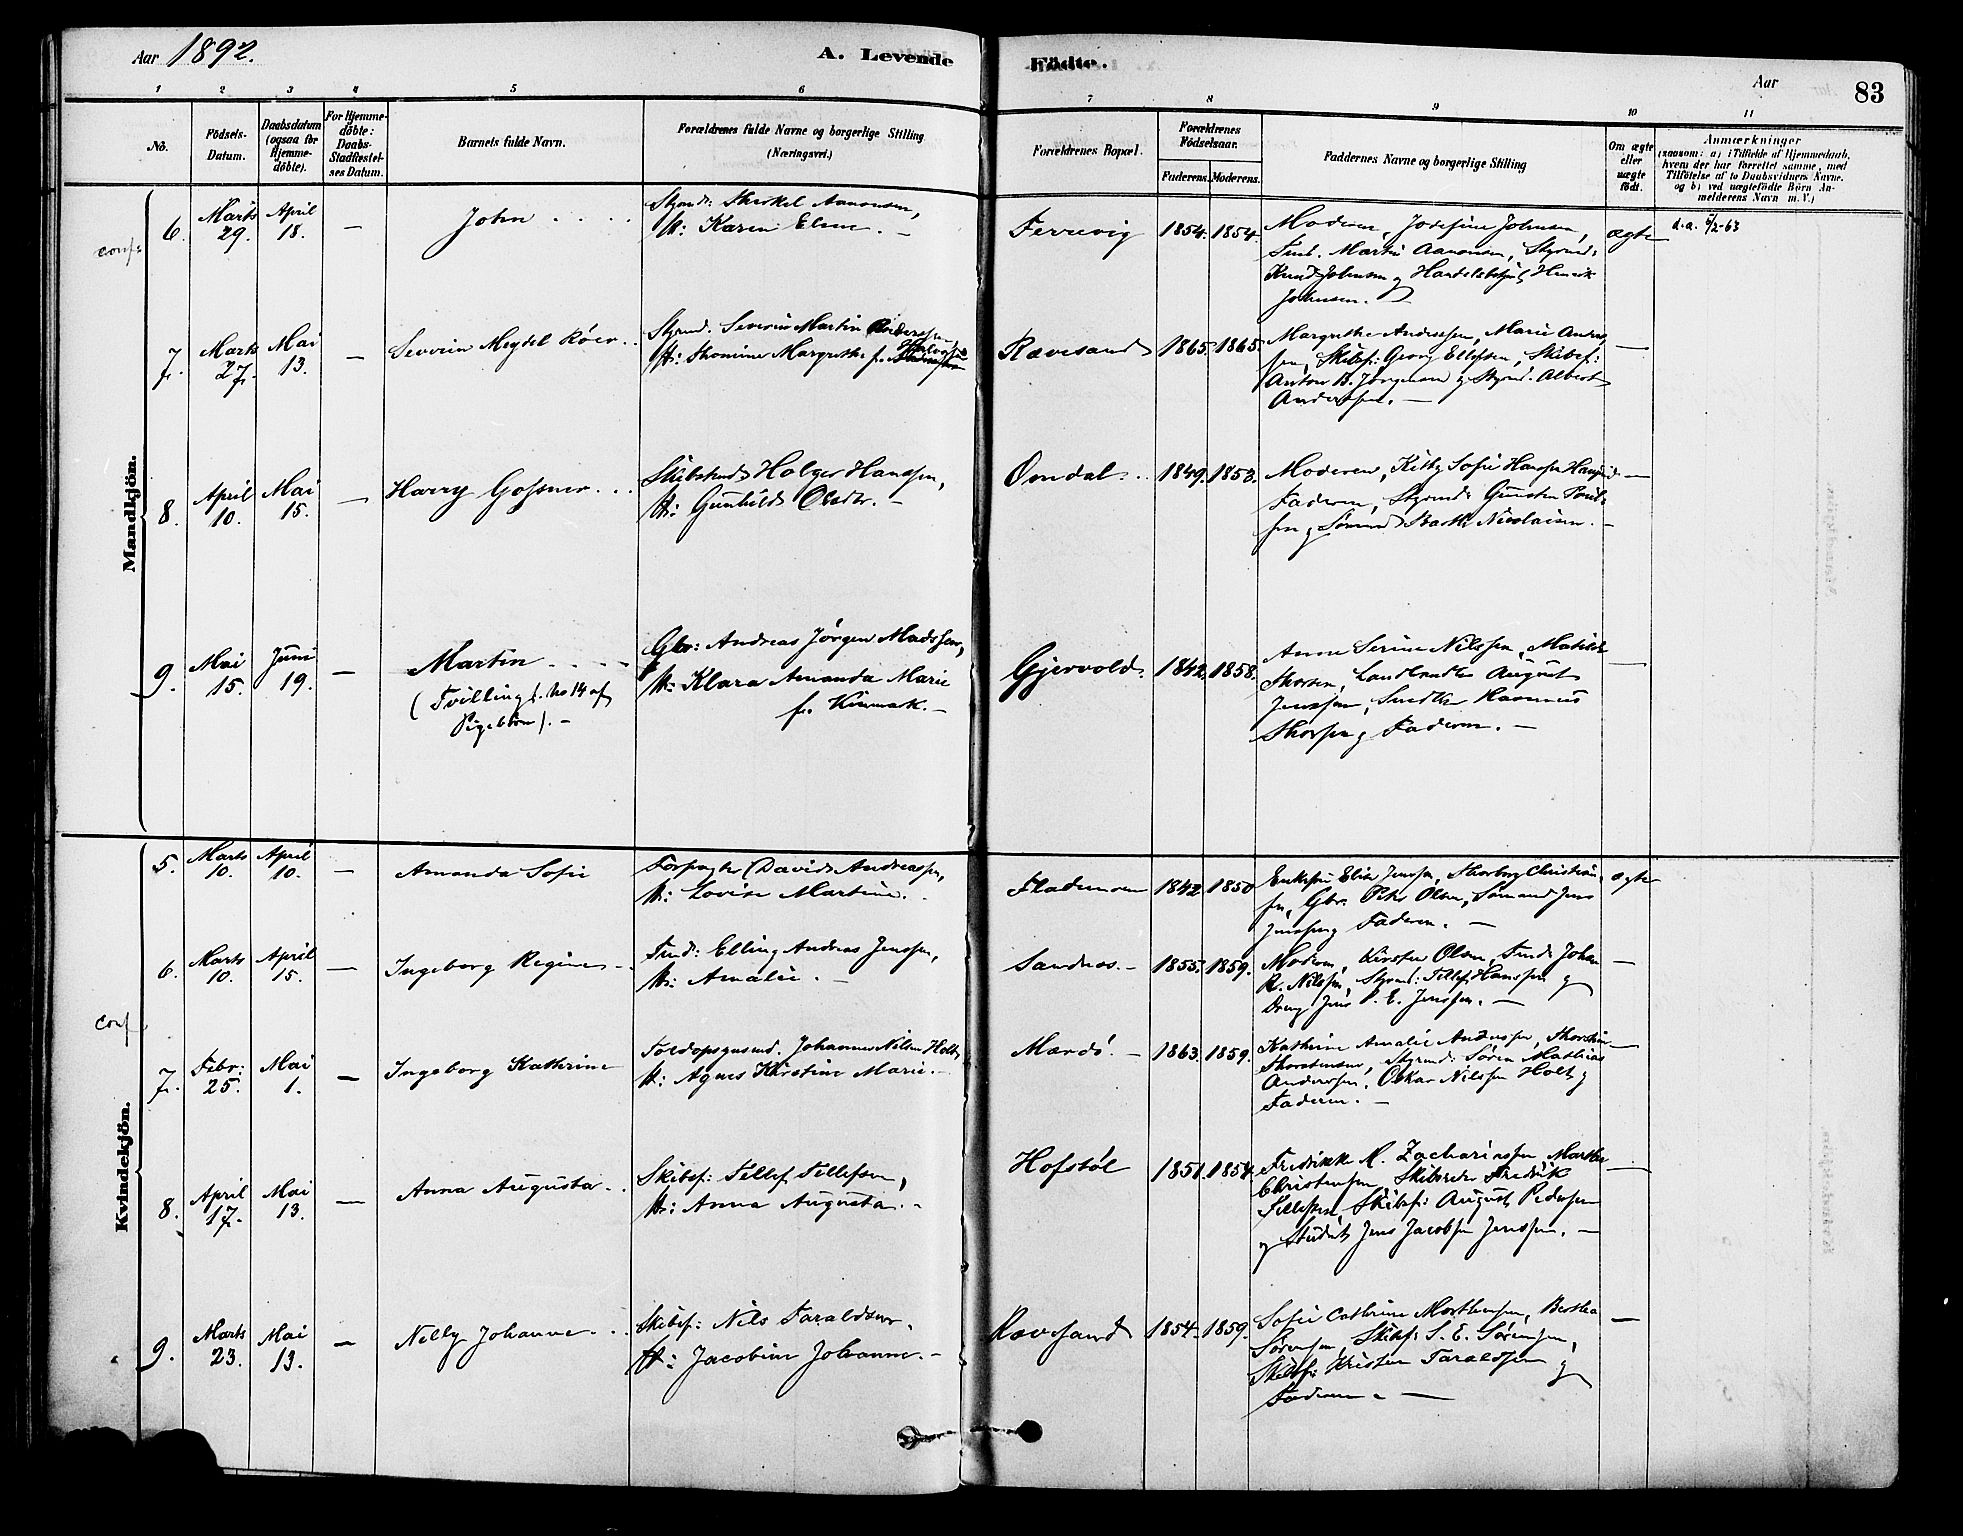 Aar 1892.
A. Levende Födte.
Aar
83
1 2 3 4 5 6 7 8 9 10 11
No.
Födsels-
Datum.
Daabsdatum
(ogsaa for
Hjemme-
döbte).
For Hjemme-
döbte:
Daabs-
Stadfæstel-
ses Datum.
Barnets fulde Navn.
Forældrenes fulde Navne og borgerlige Stilling
(Næringsvei.)
Forældrenes Bopæl.
Forældrenes
Födselsaar.
Faderens. Moderens.
Faddernes Navne og borgerlige Stilling
Om ægte
eller
uægte
födt.
Anmærkninger
(saasom: a) i Tilfælde af Hjemmedaab,
hvem der har forrettet samme, med
Tilföielse af to Daabsvidners Navne.
og b) ved uægtefödte Börn An-
melderens Navn m. V.)
Mandkjön.
conf.
6. Marts 29. April 18. — John
Styrmd: Therkel Aanonsen,
H: Karen Eline. —
Ferrevig 1854. 1854.
Moderen, Josefine Johnsen,
Tmb. Martin Aanonsen, Styrmd:
Knud Johnsen og Henrik
Johnsen. —
ægte
d.a. 5/2-63
7. Marts 27. Mai 13. — Severin Meydel Röer
Styrmd. Severin Martin
H: Thomine Margrethe f.
Ravesand 1865. 1865.
Margrethe Anderssen, Marie Anders
sen, Skibsf: Georg Ellefsen, Skibsf:
Anton B. Jörgensen og Styrmd. Albert
Anderssen. —
—
8. April 10. Mai 15. — Harry Gossner
Holger Hanssen,
H: Gunhild Olsdtr. —
Omdal 1849. 1853.
Moderen, Kitty Sofie Hanssen
Faderen, Styrmd: Gunsten
sen og Sömand Barth Nicolaisen. —
—
9. Mai 15. Juni 19. — Martin
(Tvilling f. No 14 af
Pigebörn). —
Gbr: Andreas Jörgen Madssen,
H: Klara Amanda Marie
f. —
Gjervold 1842. 1858.
Anne Serine Nilssen, Matilde
Thorsen, August
Jenssen, Rasmus
Thorsen og Faderen. —
—
Kvindekjön.
5. Marts 10. April 10. — Amanda Sofie
Forpagter David Andreassen,
H: Lovise Martine.
Fladenom 1842 1850
Elise Jenssen, Thorborg Christian
sen, Gbr. Peder Olsen, Sömand Jens
Jenssen og Faderen. —
ægte
6. Marts 10. April 15. — Ingeborg Regine
Elling Andreas Jenssen,
H: Amalie. —
Sandnes. — 1855. 1859.
Moderen, Kirsten Olsen, Johan
R. Nilssen, Styrmd: Tellef Hanssen og
Dreng Jens P. E. Jenssen. —
—
conf
7. Febr: 25. Mai 1. — Ingeborg Kathrine
Toldopsynsmd. Johannes Nilsen Holt,
H: Agnes Kirstine Marie. —
Mærdö. — 1863. 1859.
Kathrine Amalie Anderssen, Thorstine
Thorstensen, Styrmd: Sören Mathias
Anderssen, Oskar Nilssen Holt og
Faderen. —
—
8. April 17. Mai 13. — Anna Augusta
Skibsf: Tellef Tellefsen,
H: Anna Augusta. —
Hofstöl 1851. 1854.
Fredrikke M. Zachariassen, Marthe
Christensen, Skibsreder Fredrik
Tellefsen, Skibsf: August Pedersen
og Student Jens Jacobsen Jenssen. —
—
9. Marts 23. Mai 13. — Nelly Johanne
Skibsf: Nils Taraldsen.
H: Jacobine Johanne. —
Ravesand 1854. 1859.
Sofie Cathrine Morthensen, Berthea
Sörensen, Skibsf: S. E. Sörensen,
Skibsf: Kristen Taraldsen og
Faderen. —
—